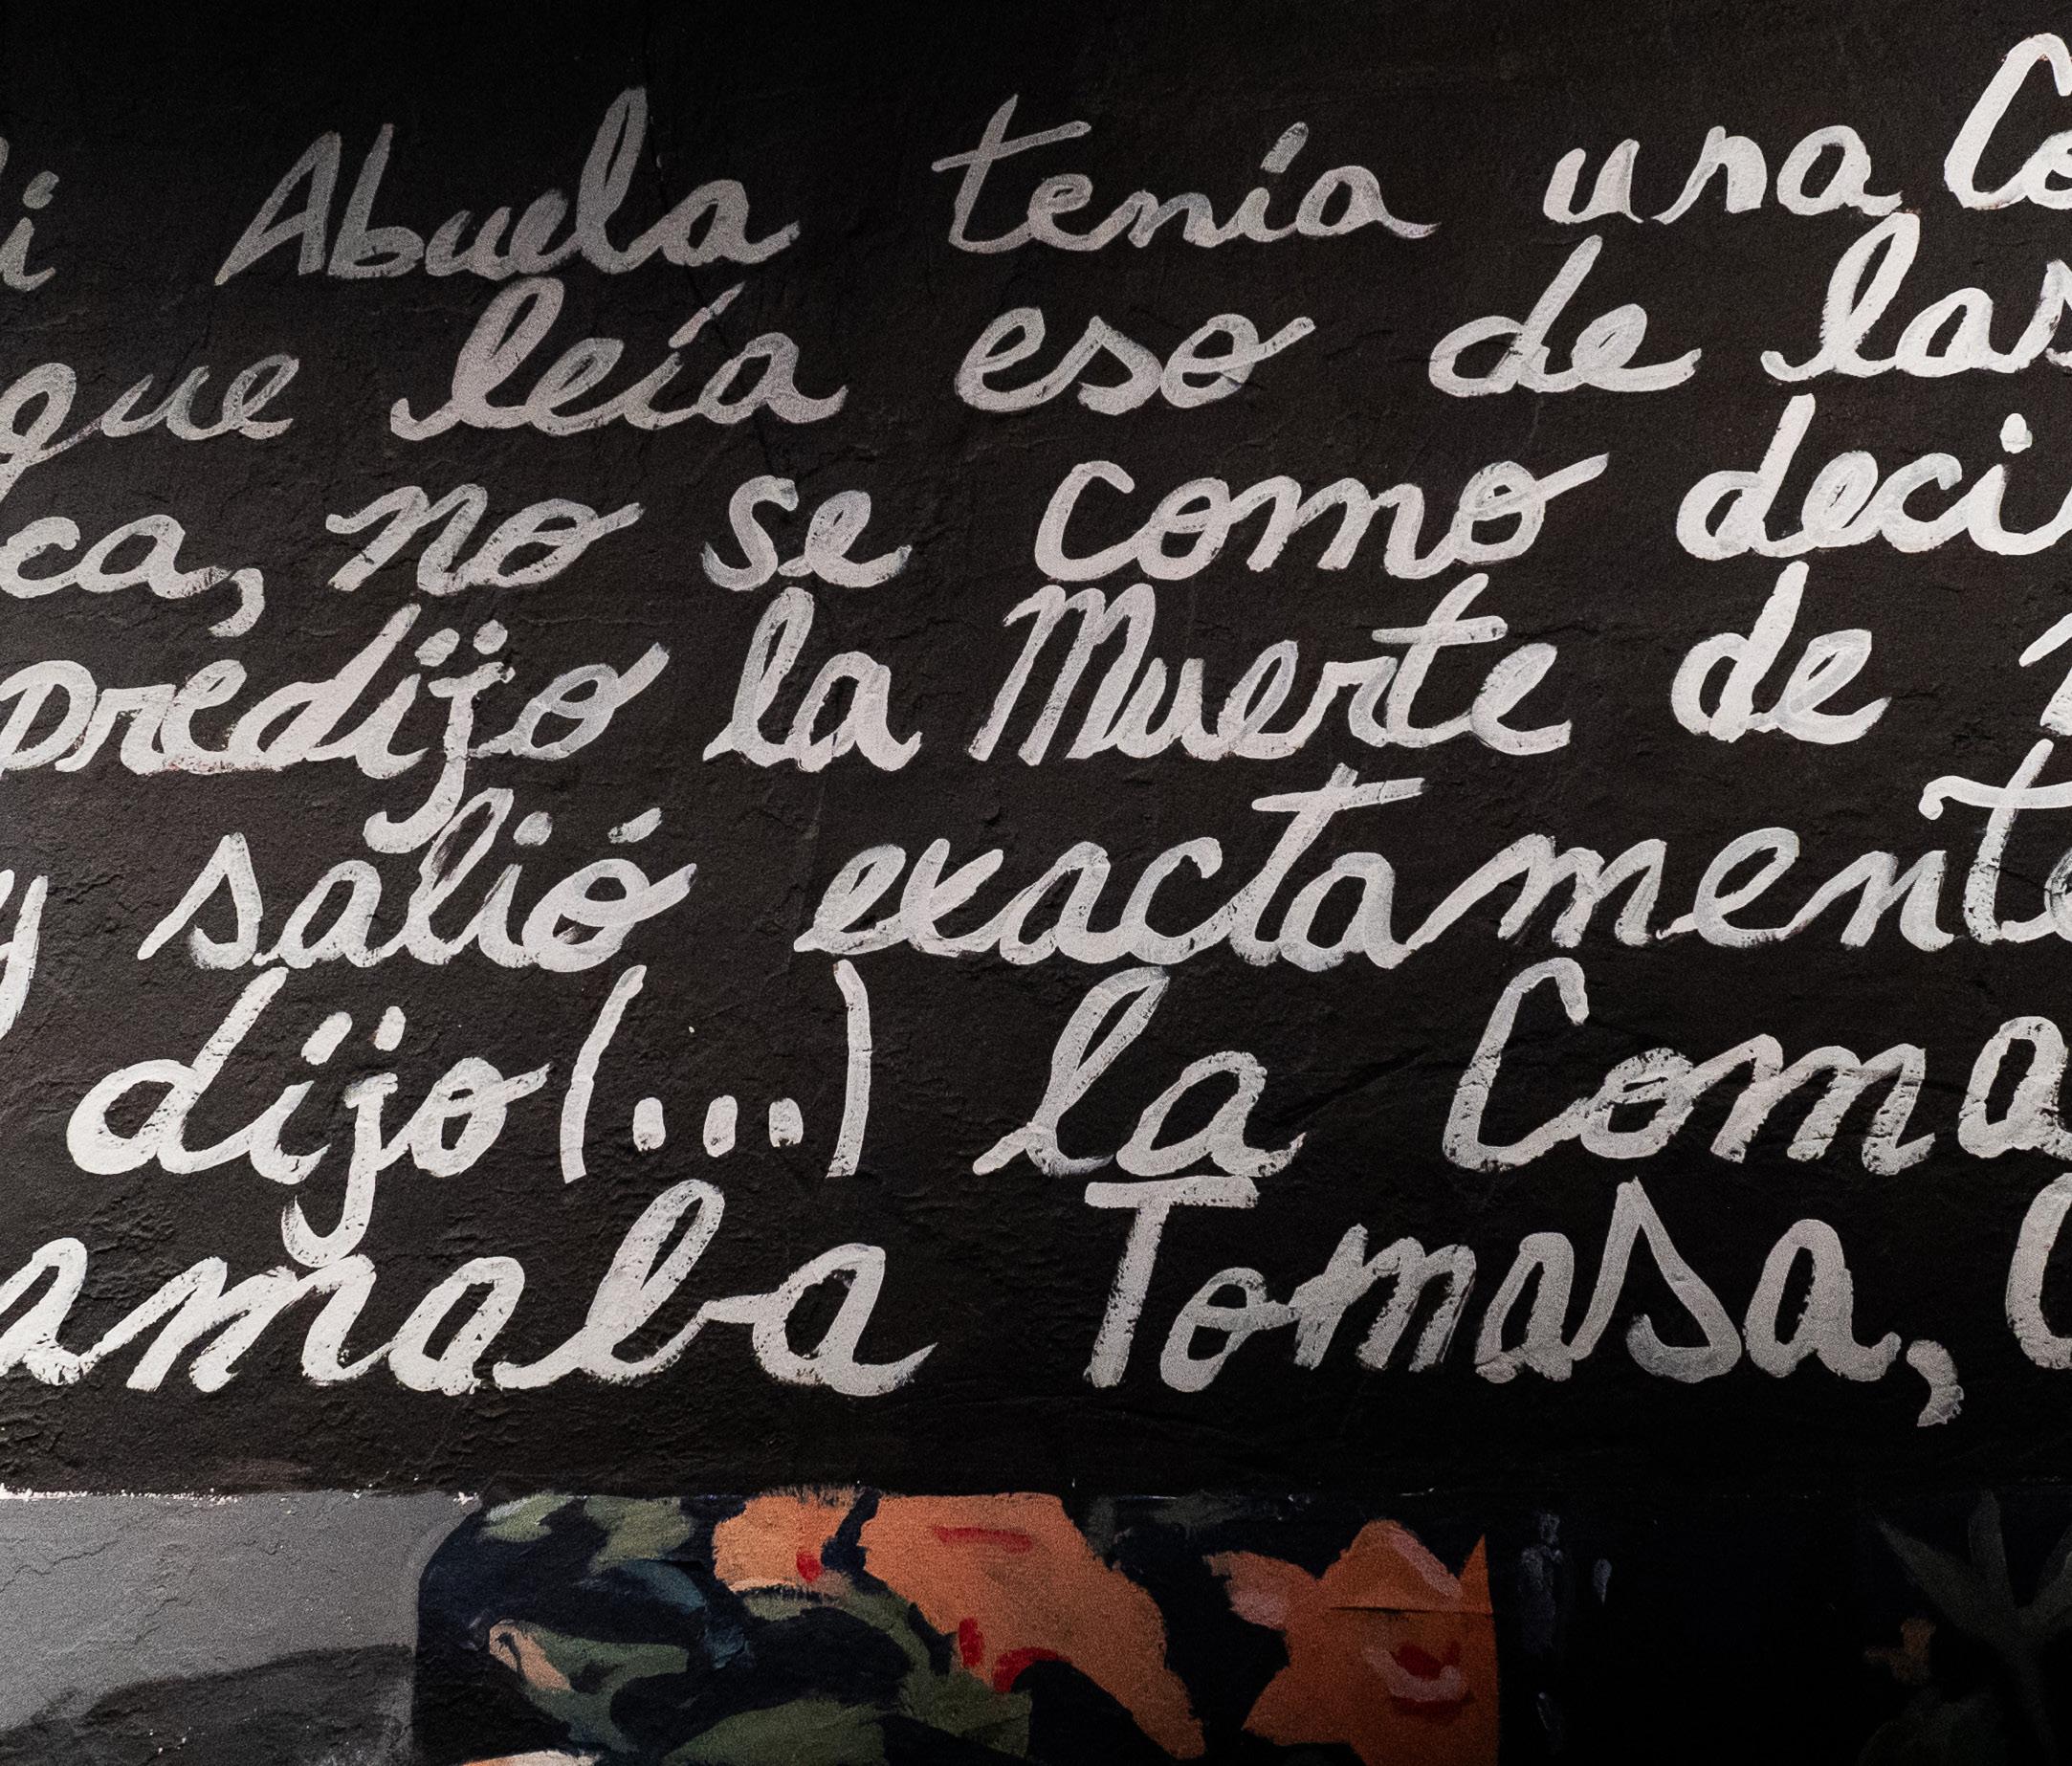 i Abuela tenía una Co
que leía eso de las
ca, no se como deci
predijo la Muerte de
y salió exactamente
dijo (...) la Coma
amaba Tomasa,